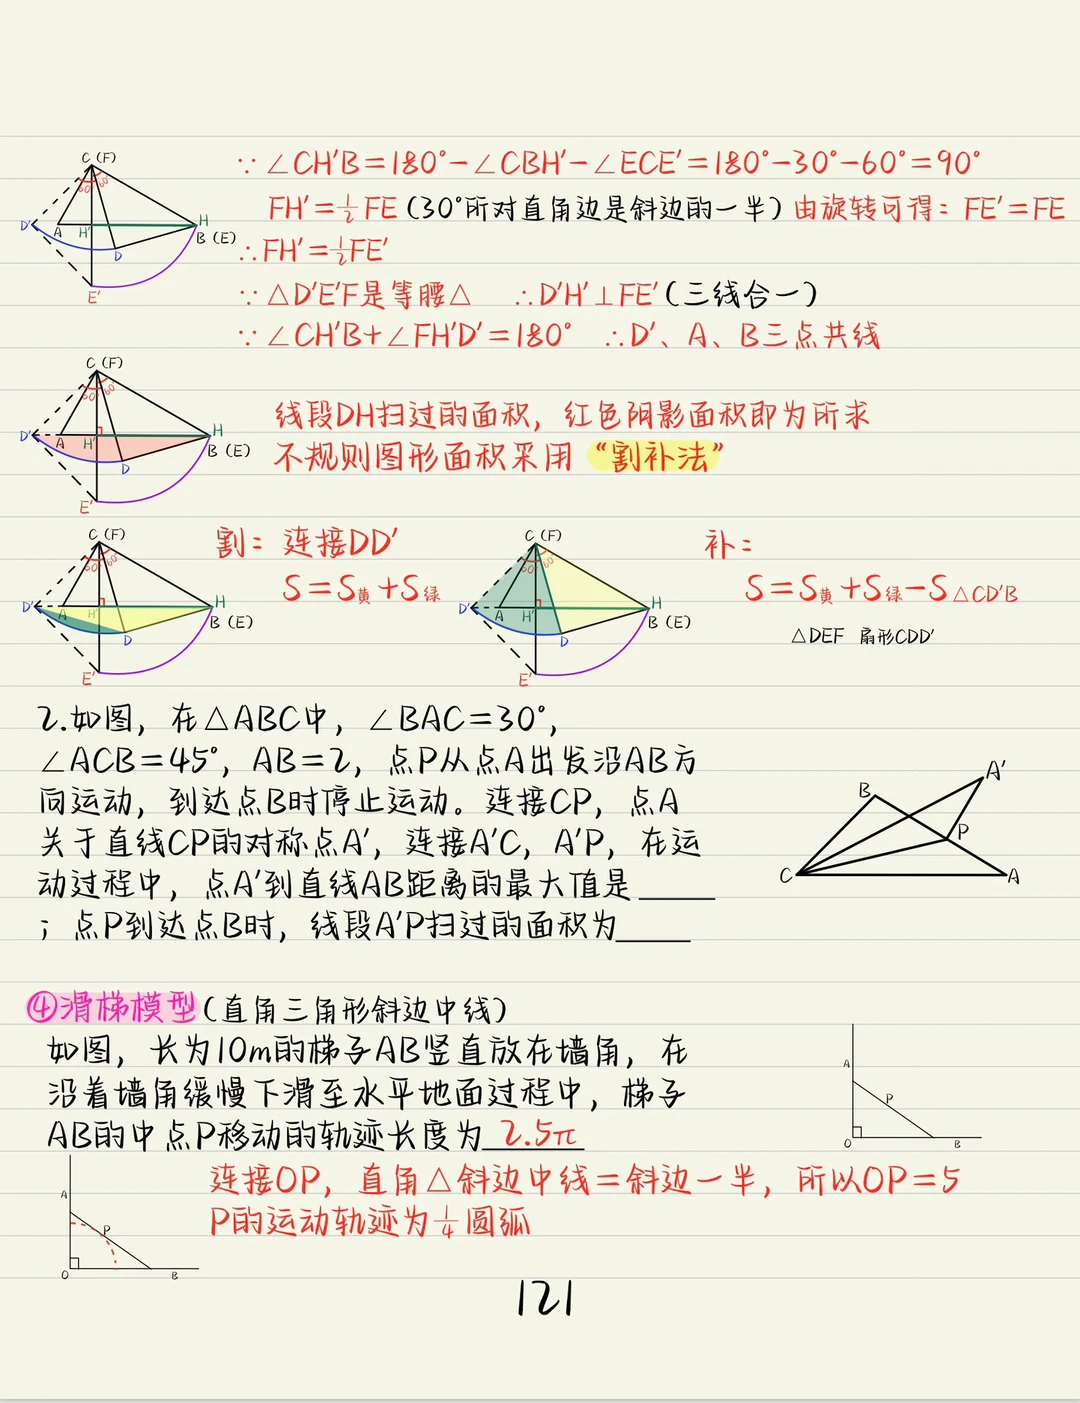 ∵∠CH'B=180°-∠CBH'-∠ECE'=180°-30°-60°=90°
FH'=½FE(30°所对直角边是斜边的一半)由旋转可得：FE'=FE
∴FH'=½FE'
∵△D'E'F是等腰△ ∴D'H'⊥FE'(三线合一)
∵∠CH'B+∠FH'D'=180° ∴D'、A、B三点共线
C(F)
60 60
D' A H' H
B(E)
D
E'
线段DH扫过的面积，红色阴影面积即为所求
不规则图形面积采用“割补法”
C(F)
60 60
D' A H' H
B(E)
D
E'
割：连接DD'
S=S黄+S绿
C(F)
60 60
D' A H' H
B(E)
D
E'
补：
S=S黄+S绿-S△CD'B
△DEF 扇形CDD'
C(F)
60 60
D' A H' H
B(E)
D
E'
2.如图，在△ABC中，∠BAC=30°，
∠ACB=45°，AB=2，点P从点A出发沿AB方
向运动，到达点B时停止运动。连接CP，点A
关于直线CP的对称点A'，连接A'C，A'P，在运
动过程中，点A'到直线AB距离的最大值是____
；点P到达点B时，线段A'P扫过的面积为____
A'
B
P
C A
④滑梯模型(直角三角形斜边中线)
如图，长为10m的梯子AB竖直放在墙角，在
沿着墙角缓慢下滑至水平地面过程中，梯子
AB的中点P移动的轨迹长度为2.5π
A
P
O B
连接OP，直角△斜边中线=斜边一半，所以OP=5
P的运动轨迹为¼圆弧
A
P
O B
121